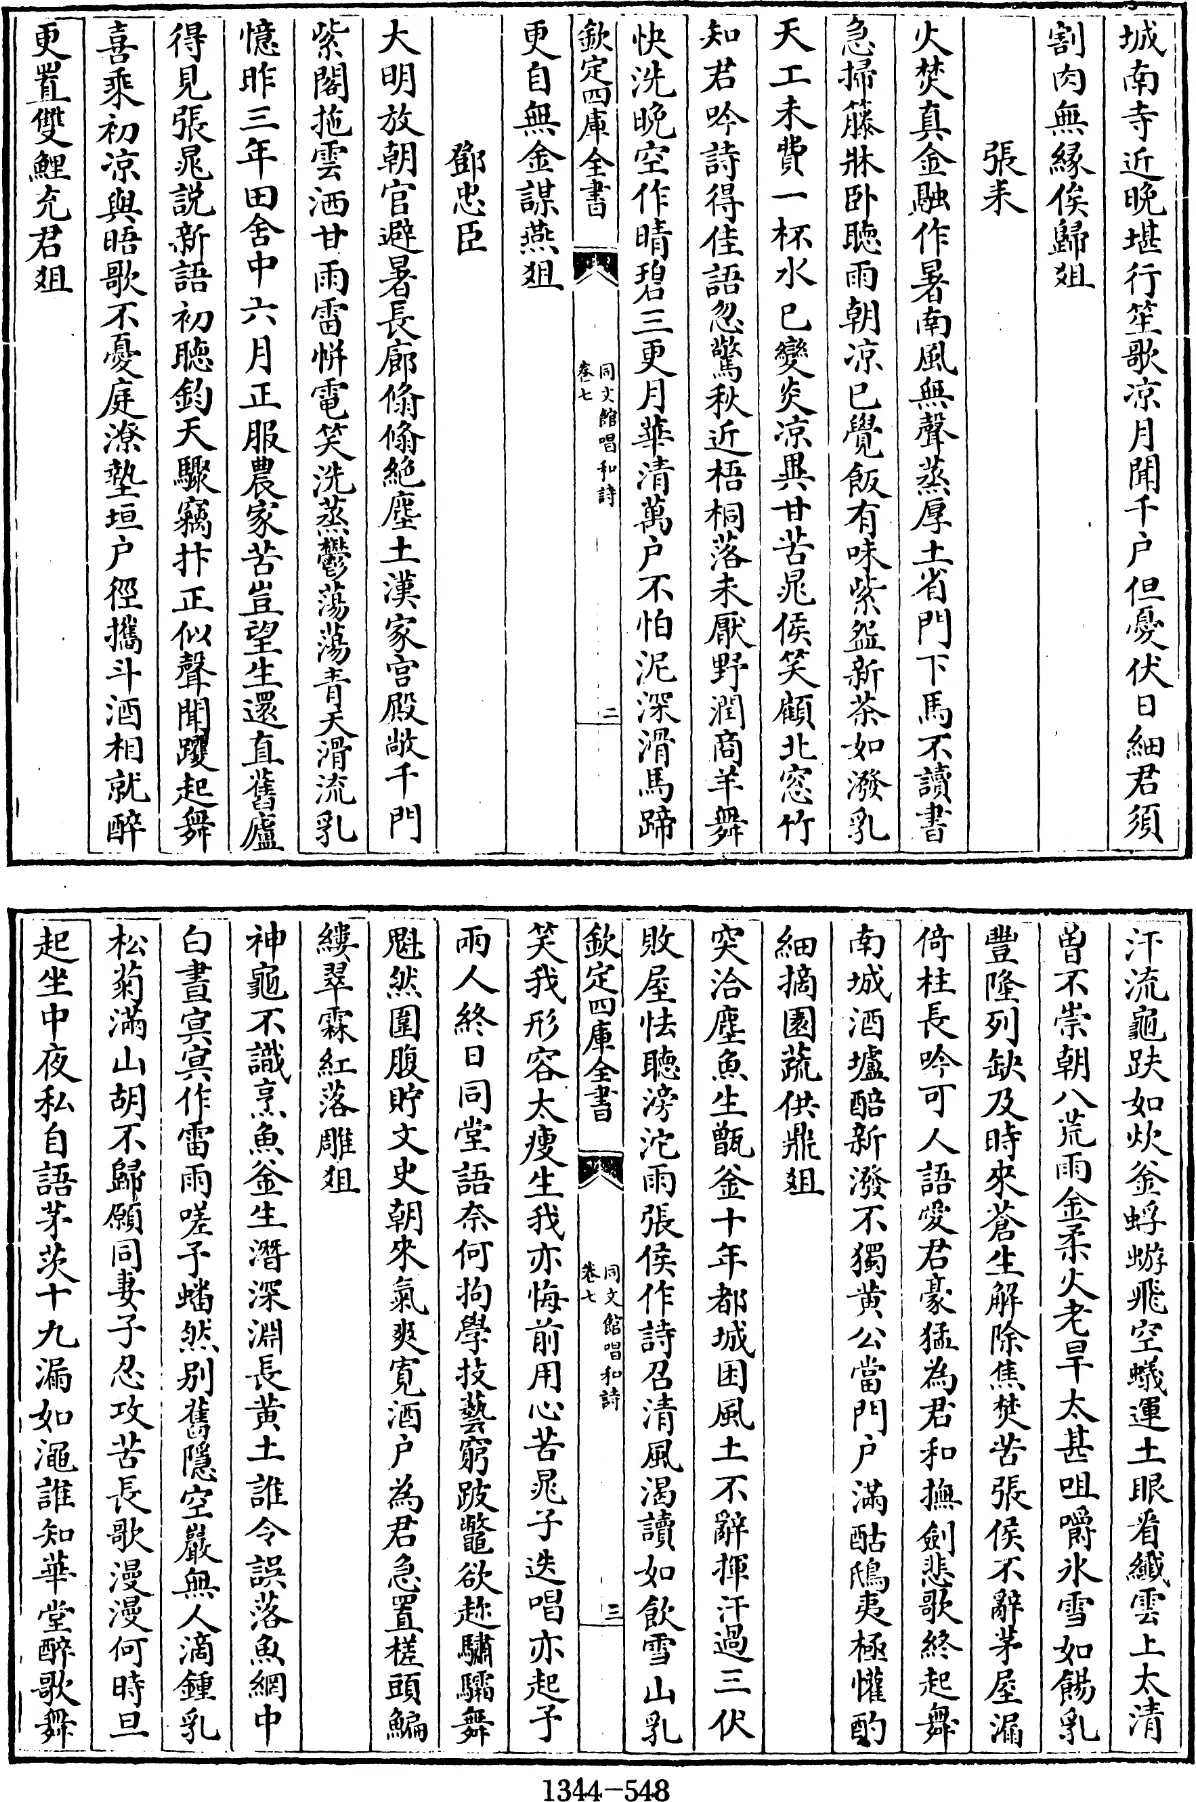 城南寺近晚堪行笙歌凉月聞千户但憂伏日細君須
割肉無縁俟歸俎
張耒
火焚真金融作暑南風無聲蒸厚土省門下馬不讀書
急掃籐牀卧聽雨朝凉已覺飯有味紫盌新茶如潑乳
天工未費一杯水已變炎凉異甘苦晁侯笑顧北窓竹
知君吟詩得佳語忽驚秋近梧桐落未厭野潤商羊舞
快洗晚空作晴碧三更月華清萬户不怕泥深滑馬蹄
欽定四庫全書
同文館唱和詩
卷七
二
更自無金謀燕俎
鄧忠臣
大明放朝官避暑長廊翛翛絶塵土漢家宫殿敞千門
紫閣拖雲洒甘雨雷恲電笑洗蒸鬱蕩蕩青天滑流乳
憶昨三年田舍中六月正服農家苦豈望生還直舊廬
得見張晁説新語初聽鈞天驟竊抃正似聲聞躍起舞
喜乘初凉與晤歌不憂庭潦墊垣户徑攜斗酒相就醉
更置雙鯉充君俎
汗流龜趺如炊釜蜉蝣飛空蟻運土眼看纎雲上太清
曽不崇朝八荒雨金柔火老旱太甚咀嚼氷雪如餳乳
豐隆列缺及時來蒼生解除焦焚苦張侯不辭茅屋漏
倚柱長吟可人語愛君豪猛為君和撫劍悲歌終起舞
南城酒壚醅新潑不獨黄公當門户滿酤鴟夷極懽酌
細摘園蔬供鼎俎
突洽塵魚生甑釜十年都城困風土不辭揮汗過三伏
敗屋怯聽滂沱雨張侯作詩召清風渴讀如飲雪山乳
欽定四庫全書
同文館唱和詩
卷七
三
笑我形容太瘦生我亦悔前用心苦晁子迭唱亦起予
兩人終日同堂語奈何拘學技藝窮跛鼈欲趂驌驦舞
魁然圍腹貯文史朝來氣爽寛酒户為君急置槎頭鯿
縷翠霖紅落雕俎
神龜不識烹魚釜生潛深淵長黄土誰令誤落魚網中
白晝冥冥作雷雨嗟予蟠然别舊隱空巖無人滴鍾乳
松菊滿山胡不歸願同妻子忍攻苦長歌漫漫何時旦
起坐中夜私自語茅茨十九漏如澠誰知華堂醉歌舞
1344-548